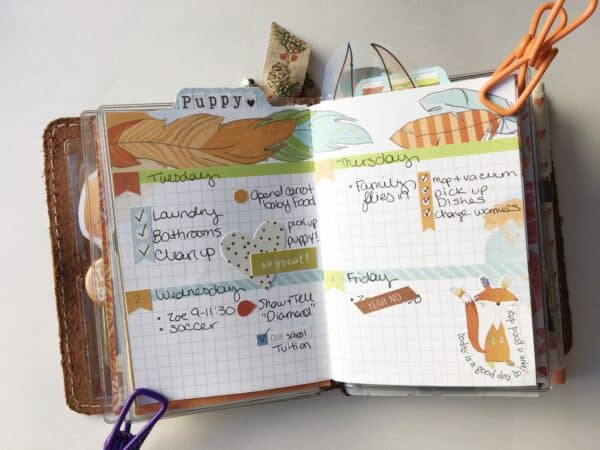 Puppy
Tuesday
Opened carrot
baby Food
Laundry
Bathrooms
Clean up
pick up
puppy!
so great!
2
Wednesday
• Zoe 9-11:30
• soccer
Show & Tell
"Diamond"
DUE school
Tuition
Thursday
• Family
flies in
mop + vacuum
pick up
Dishes
change
4
Friday
YEAH NO
30
today is a good day to have a good day